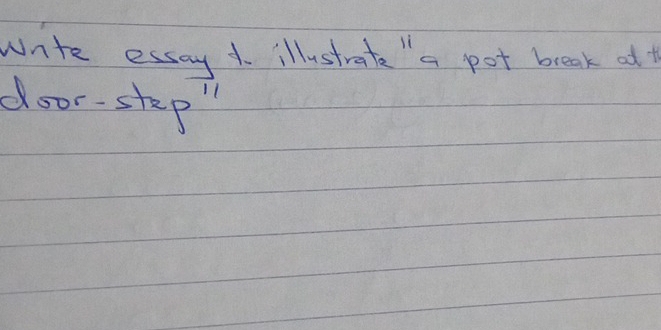 Write essay to illustrate "a pot break at
door-step"